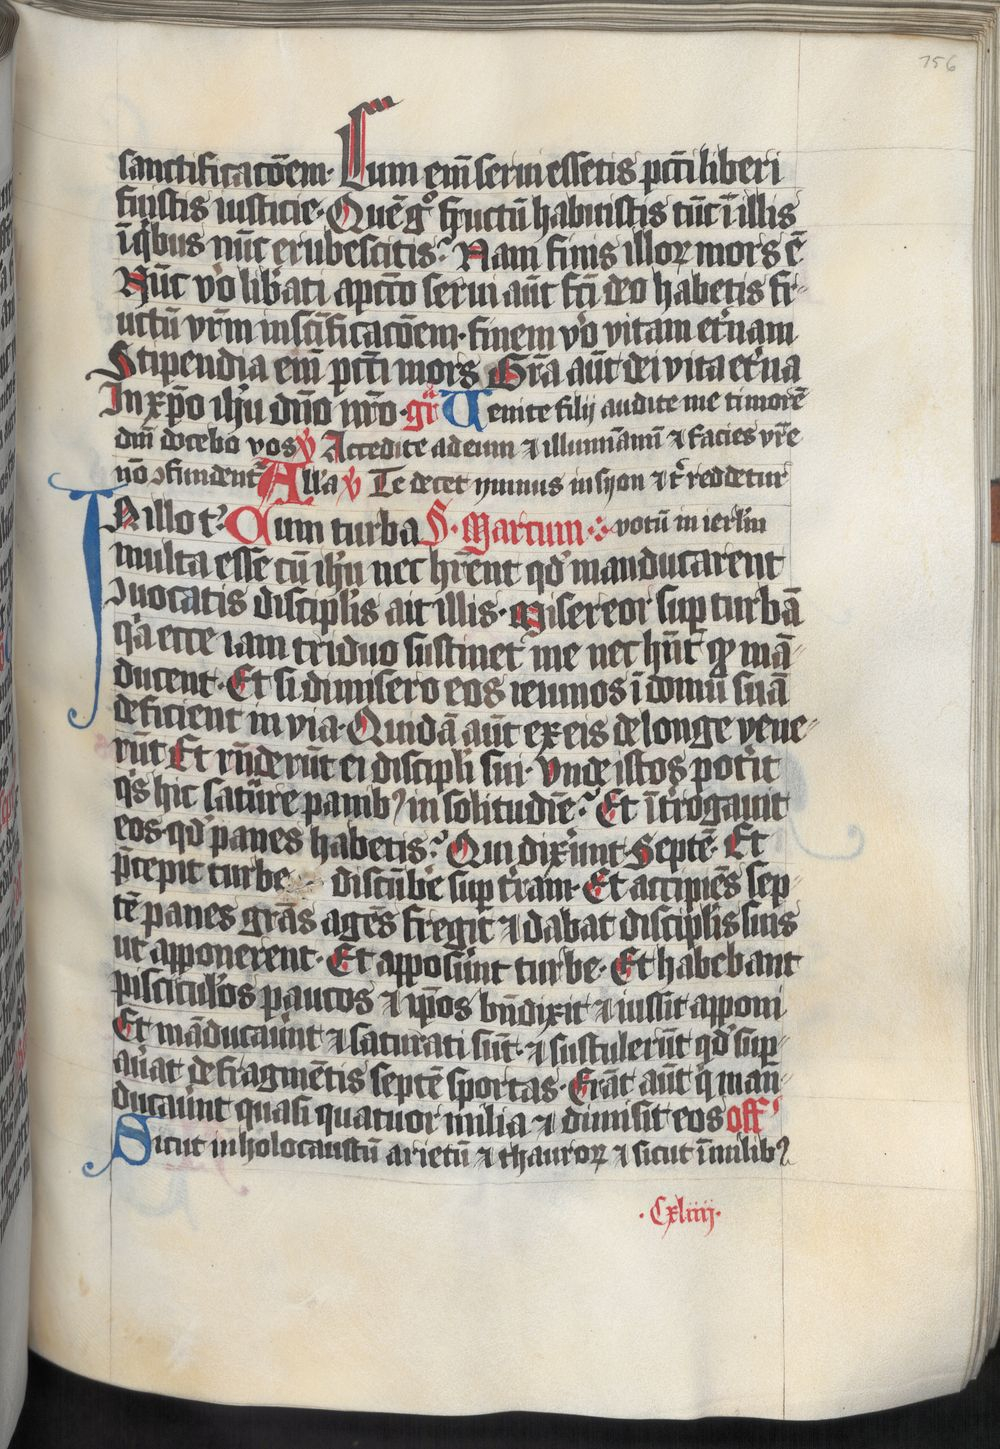 156
sanctificacōem· Cum em̄ serui essetis pctī liberi
fuistis iusticie· Quē gͦ fructū habuistis tūc ī illis
ī qͥbus nūc erubescitis? Nam finis illoꝝ mors ē
Nūc vͦo libᵃati a pctō serui aūt fcī deo habetis fr-
uctū vr̄m in sctīficacōem· finem vͦo vitam etᵉnam
Stipendia em̄ pctī mors Grā aūt dei vita etᵉna
In xp̄o ih̄u dn̄o nr̄o· gr̄ Uenite filij audite me timorē
dnī docebo vos ℣ Accedite ad eum ⁊ illumīamī ⁊ facies vr̄e
nō ꝯfundentᷣ Allᷓa ℣ Te decet ymnus in syon ⁊ tᷓ reddetur
IN illo t̄· Cum turba S· Marcum· votū in ierlm̄
multa essꝫ cū ih̄u nec hr̄ent qd̓ manducarent
ꝯuocatis discipl̓is ait illis· Misereor sup turbā
qᷓa ecce iam triduo sustinetᷣ me nec hn̄t qd̓ mā-
ducent· Et si dimisero eos ieiunos ī domū suā
deficient in via· Quidā aūt ex eis de longe vene-
rūt Et rn̄derūt ei discipl̓i sui· Vnde istos potᵉit
qͥs hic saturᵃe panibꝰ in solitudīe? Et ītᵉrogauit
eos· qd̓ panes habetis? Qui dixᵉunt· Septē· Et
p̄cepit turbe discūbᵉe sup tᵉram· Et accipiēs sep-
tē panes grās agēs fregit ⁊ dabat discipl̓is suis
ut apponerent· Et apposūnt turbe· Et habebant
pisciculos paucos ⁊ ip̄os bn̄dixit ⁊ iussit apponi
Et māducauᵉnt ⁊ saturati sūt· ⁊ sustulerūt qd̓ sup-
auᵉat de fragmētis septē sportas· Erāt aūt qͥ man-
ducauᵉnt quasi quatuor milia ⁊ dimisit eos off̄
Sicut in holocaustū arietū ⁊ thauroꝝ ⁊ sicut ī milibꝰ
·Cxliiij·